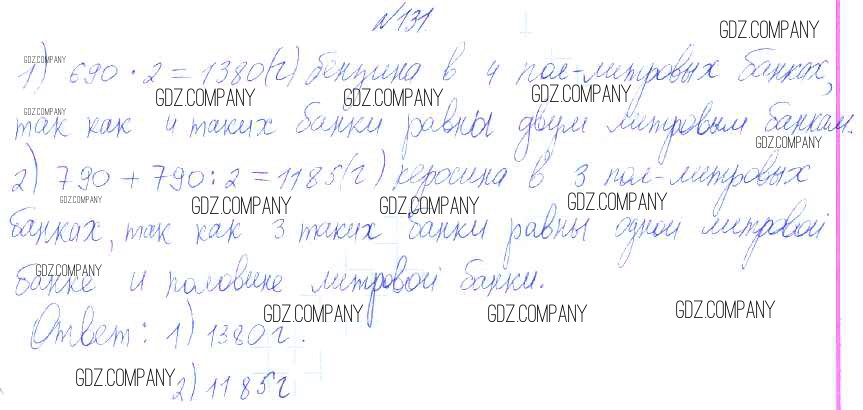 №131.
GDZ.COMPANY
GDZ.COMPANY
1) 690 · 2 = 1380(г) бензина в 4 пол-литровых банках,
GDZ.COMPANY GDZ.COMPANY GDZ.COMPANY
GDZ.COMPANY
так как 4 таких банки равны двум литровым банкам.
GDZ.COMPANY
2) 790 + 790 : 2 = 1185(г) керосина в 3 пол-литровых
GDZ.COMPANY GDZ.COMPANY GDZ.COMPANY GDZ.COMPANY
банках, так как 3 таких банки равны одной литровой
GDZ.COMPANY
банке и половине литровой банки.
GDZ.COMPANY GDZ.COMPANY GDZ.COMPANY
Ответ: 1) 1380г.
GDZ.COMPANY
2) 1185г